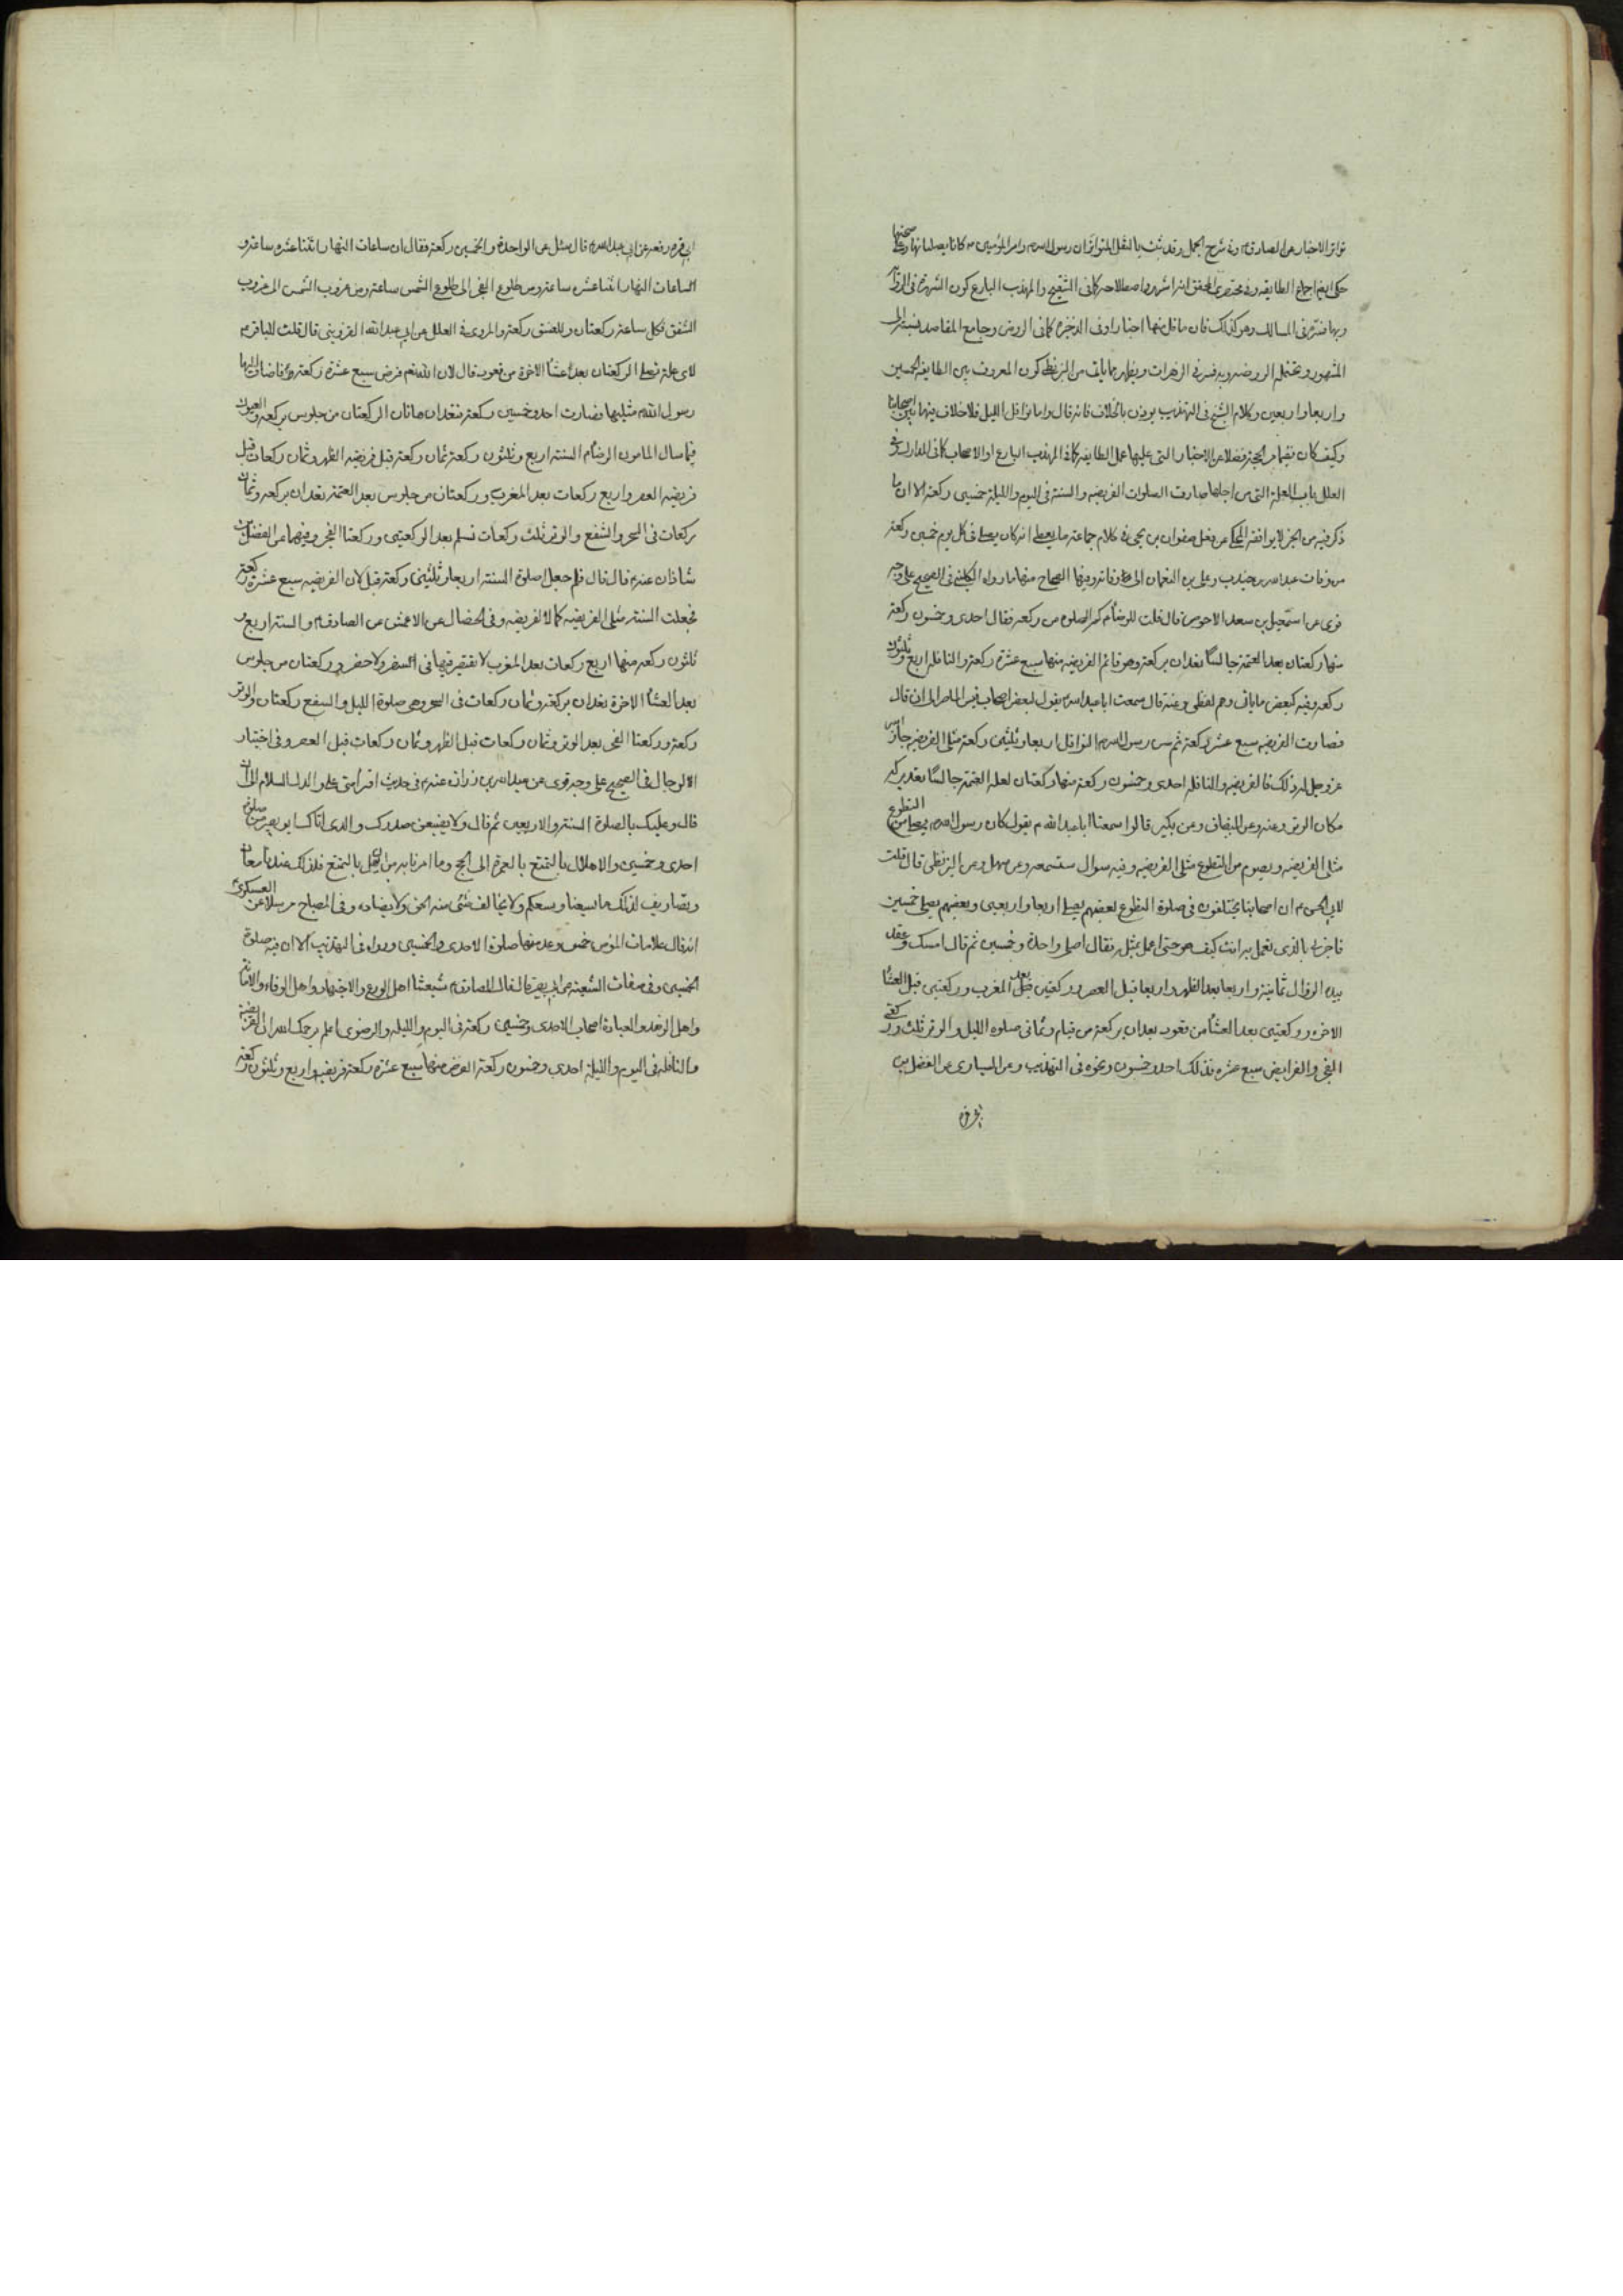 تواتر الاخبار عن الصادق م وفي شرح الجمل وقد ثبت بالنقل المتواتر ان رسول الله م وامير المؤمنين م كانا يصليانها وعلى صحتها
حكى ايضا اجماع الطايفه وفي مختصري المحقق انه اشهر
وبها فتره في المسالك وهو كذلك فان ما قل منها اخبارا وفي الذخيرة كما في الروض وجامع المقاصد نسبته الى
المشهور وتحتمله الروضه وبه فسر في الزهرات ويظهر مما ياتي من البزنطي كون المعروف بين الطايفه الخمسين
واربعا واربعين وكلام الشيخ في التهذيب يوذن بالخلاف فانه قال واما نوافل الليل فلا خلاف فيها بين اصحابنا
وكيف كان فضلا عن الاخبار التي عليها عمل الطايفه كما في المهذب البارع او الاصحاب كما في المدارك وفي
العلل باب العلة التي من اجلها صارت الصلوات الفريضه والسنة في اليوم والليلة خمسين ركعة الا ان ما
ذكر فيه من الخبر لا يوافقه المحكي من فعل صفوان بن يحيى في كلام جماعة ما يعطي انه كان يصلي في كل يوم خمسين ركعة
عبد الله بن جندب وعلي بن النعمان وفيها الصحاح منها ما رواه الكليني في الصحيح على وجه
قوي عن اسمعيل بن سعد الاحوص قال قلت للرضا م كم الصلوة من ركعه فقال احدى وخمسون ركعة
منها ركعتان بعد العتمة جالسا تعدان بركعة وهو قائم الفريضه منها سبع عشرة ركعة والنافله اربع وثلثون
ركعه وفيه كبعض ما ياتي وعنه قال سمعت ابا عبد الله م يقول لبعض اصحاب قيس الماصر الى ان قال
فصارت الفريضه سبع عشر ركعة ثم سن رسول الله م النوافل اربعا وثلثين ركعة مثلي الفريضه فاجاز الله
عز وجل له ذلك فالفريضه والنافله احدى وخمسون ركعة منها ركعتان بعد العتمة جالسا تعد بركعة
مكان الوتر وعنه وعن البقباق وعن بكير قالوا سمعنا ابا عبد الله م يقول كان رسول الله م يصلي من التطوع
مثلي الفريضه ويصوم من التطوع مثلي الفريضه وفيه سوال ستسمعه وعن سهل وعن البزنطي قال قلت
لابي الحسن م ان اصحابنا يختلفون في صلوة التطوع بعضهم يصلي اربعا واربعين وبعضهم يصلي خمسين
فاخبرني بالذي تعمل به انت كيف هو حتى اعمل بمثله فقال اصلي واحدة وخمسين ثم قال امسك وعقد
بيده الزوال ثمانية واربعا بعد الظهر واربعا قبل العصر وركعتين بعد المغرب وركعتين قبل العشا
الاخره وركعتين بعد العشا من قعود بعدان بركعة من قيام وثماني صلوة الليل والوتر ثلث وركعتي
الفجر والفرايض سبع عشره فذلك احد وخمسون ونحوه في التهذيب وعن السياري عن الفضل بن
ابي قره
ابي قره رفعه عن ابي عبد الله م قال سئل عن الواحدة والخمسين ركعة فقال ان ساعات النهار اثنتا عشره ساعة و
الساعات النهار اثنتا عشره ساعة ومن طلوع الفجر الى طلوع الشمس ساعة ومن غروب الشمس الى غروب
الشفق فلكل ساعة ركعتان وللغسق ركعة والمروي في العلل عن ابي عبد الله القزويني قال قلت للباقر م
لاي علة تصلي الركعتان بعد العشا الاخرة من قعود قال لان الله تعم فرض سبع عشرة ركعة فاضاف اليها
رسول الله م مثليها فصارت احد وخمسين ركعة فتعدان هاتان الركعتان من جلوس بركعه والعيون
فيما سال المامون الرضا م السنة اربع وثلثون ركعة ثمان ركعة قبل فريضه الظهر وثمان ركعات قبل
فريضه العصر واربع ركعات بعد المغرب وركعتان من جلوس بعد العتمة تعدان بركعه وثمان
ركعات في السحر والشفع والوتر ثلث ركعات تسلم بعد الركعتين وركعتا الفجر وفيهما عن الفضل بن
شاذان عنه م قال قال فلم جعل صلوة السنة اربعا وثلثين ركعة قيل لان الفريضه سبع عشرة ركعة
فجعلت السنة مثلي الفريضه كمالا للفريضه وفي الخصال عن الاعمش عن الصادق م والسنة اربع و
ثلثون ركعه منها اربع ركعات بعد المغرب لا تقصر فيها في السفر ولا حضر وركعتان من جلوس
بعد العشا الاخرة تعدان بركعة وثمان ركعات في السحر وهي صلوة الليل والشفع ركعتان والوتر
ركعة وركعتا الفجر بعد الوتر وثمان ركعات قبل الظهر وثمان ركعات قبل العصر وفي اختيار
الرجال في الصحيح على وجه قوي عن عبد الله بن زرارة عنه م في حديث اقرا مني على والدك السلام الى ان
قال وعليك بالصلوة الستة والاربعين ثم قال ولا يضيقن صدرك والذي اتاك ابو بصير من صلوة
احدى وخمسين والاهلال بالتمتع بالعمرة الى الحج وما امرنا به من ان يهل بالتمتع فلذلك عندنا معان
وتصاريف لذلك ما يسعنا ويسعكم ولا يخالف شئ منه الحق ولا يضاده وفي المصباح مرسلا عن العسكري م
انه قال علامات المؤمن خمس وعد منها صلوة الاحدى والخمسين ورواه في التهذيب الا ان فيه صلوة
الخمسين وفي صفات الشيعة عن ابي بصير قال قال الصادق م شيعتنا اهل الورع والاجتهاد واهل الوفاء والامانة
واهل الزهد والعبادة اصحاب الاحدى وخمسين ركعة في اليوم والليله والرضوي اعلم يرحمك الله ان الفريضة
والنافلة في اليوم والليلة احدى وخمسون ركعة الفرض منها سبع عشرة ركعة فريضه واربع وثلثون ركعة